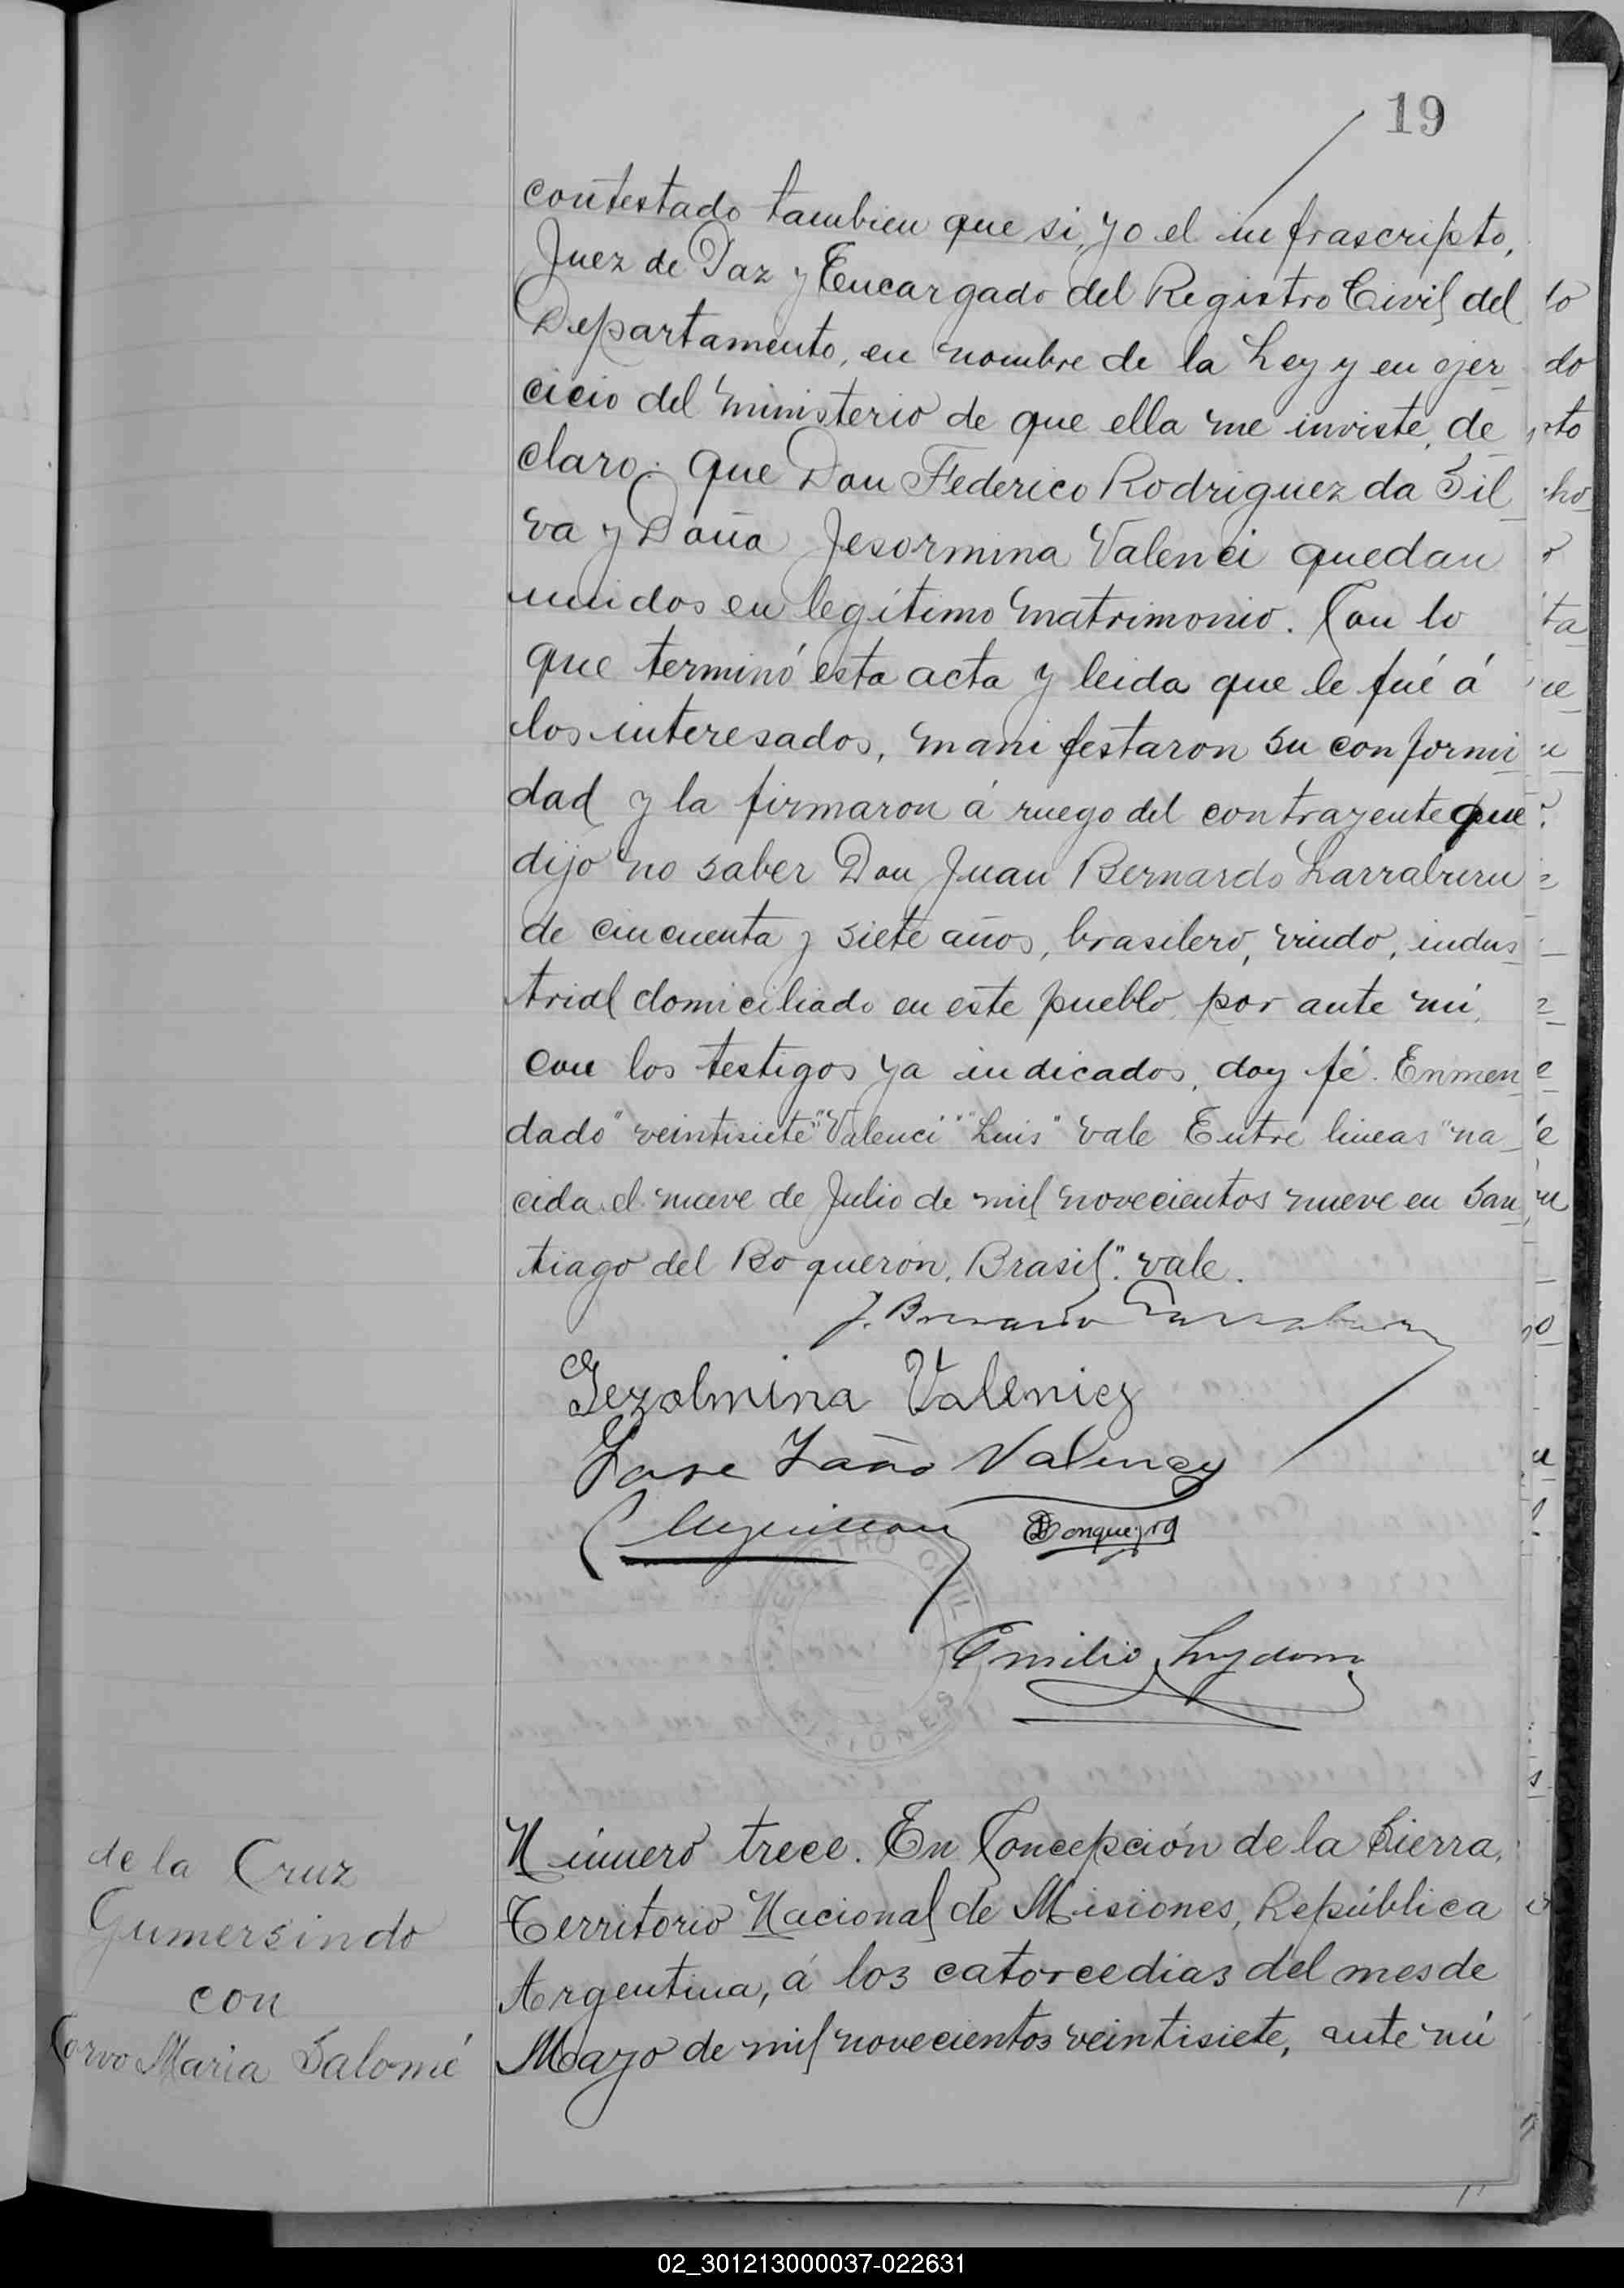 19
contestado tambien que si, yo el infrascripto,
Juez de Paz y Encargado del Registro Civil del
Departamento, en nombre de la Ley y en ejer
cicio del ministerio de que ella me inviste, de
claro: que Don Federico Rodriguez da Sil
va y Doña Jesormina Valenci quedan
unidos en legítimo matrimonio. Con lo
que terminó esta acta y leida que le fué á
los interesados, manifestaron su conformi
dad y la firmaron á ruego del contrayente que
dijo no saber Don Juan Bernardo Larraburu
de cincuenta y siete años, brasilero, viudo, indus
trial domiciliado en este pueblo, por ante mi,
con los testigos ya indicados, doy fé. Enmen
dado "veintisiete" "Valenci" "Luis" vale Entre lineas "na
cida el nueve de Julio de mil novecientos nueve en San
tiago del Boqueron, Brasil". vale.
J. Bernardo Larraburu
Jezolmina Valeniez
Jose Valency
REGISTRO CIVIL
MISIONES
Emilio
de la Cruz
Gumersindo
con
Corvo Maria Salomé
Número trece. En Concepción de la Sierra,
Territorio Nacional de Misiones, República
Argentina, á los catorce dias del mes de
Mayo de mil novecientos veintisiete, ante mi
02_301213000037-022631